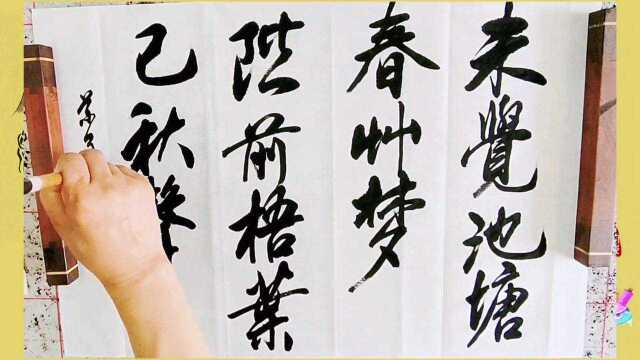 未覺池塘
春艸梦
階前梧葉
已秋聲